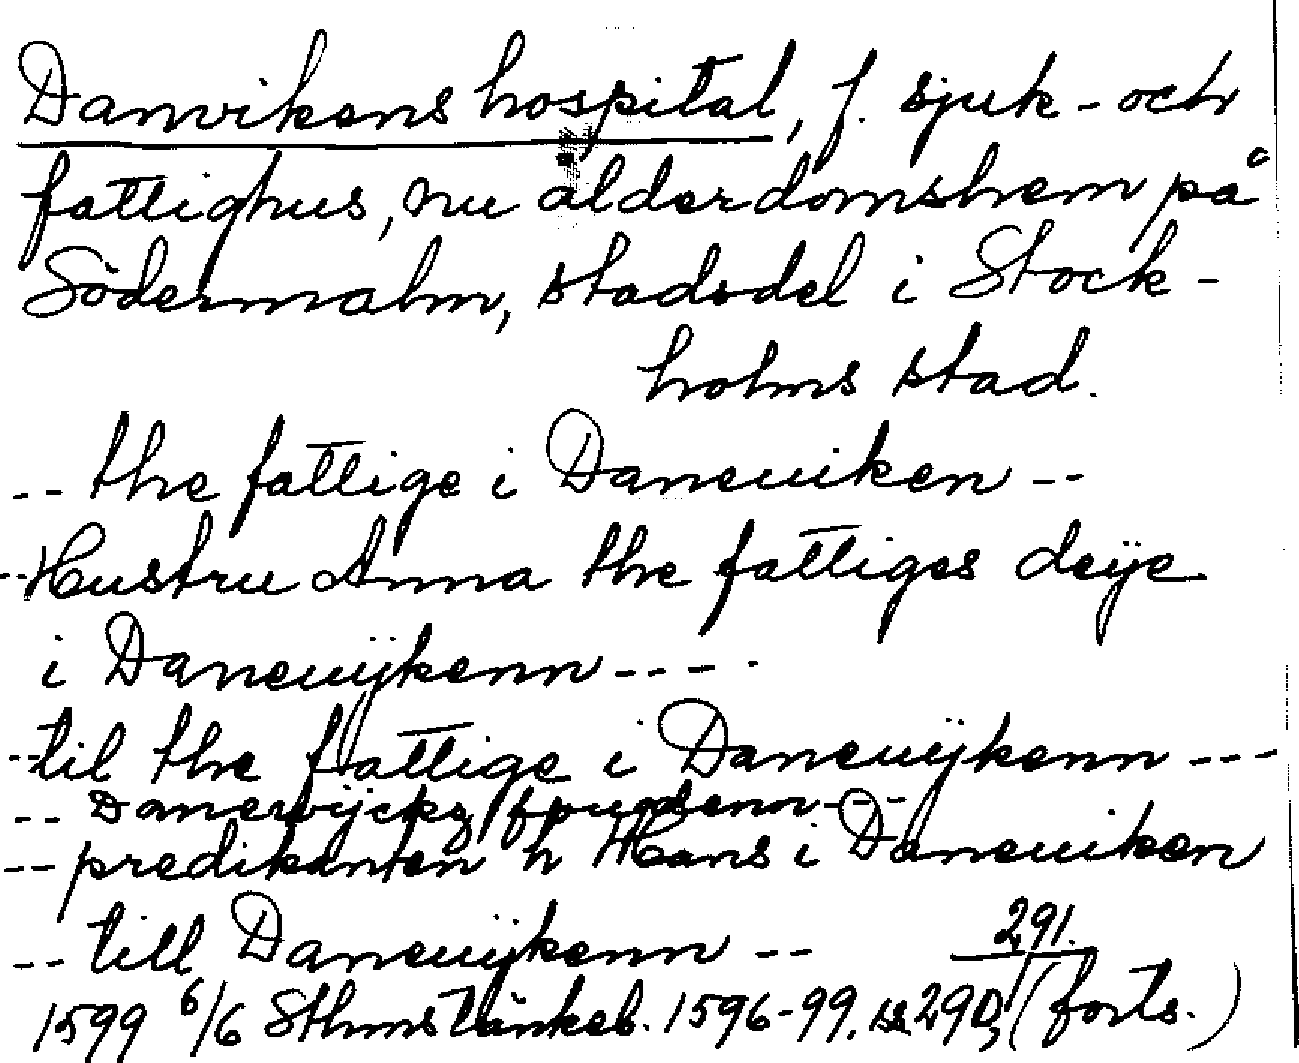 Danvikens hospital, f. sjuk- och
fattighus, nu ålderdomshem på
Södermalm, stadsdel i Stock-
holms stad.
-- the fattige i Daneuiken --
-- Hustru Anna the fattiges deÿe
i Daneuÿkenn ----
-- til the fattige i Daneuÿkenn ---
-- Danewijckz fougdenn ---
-- predikanten h Hans i Daneuiken
-- till Daneuÿkenn --
291.
1599 6/6 Sthms tänkeb. 1596-99. s. 290, (forts.)